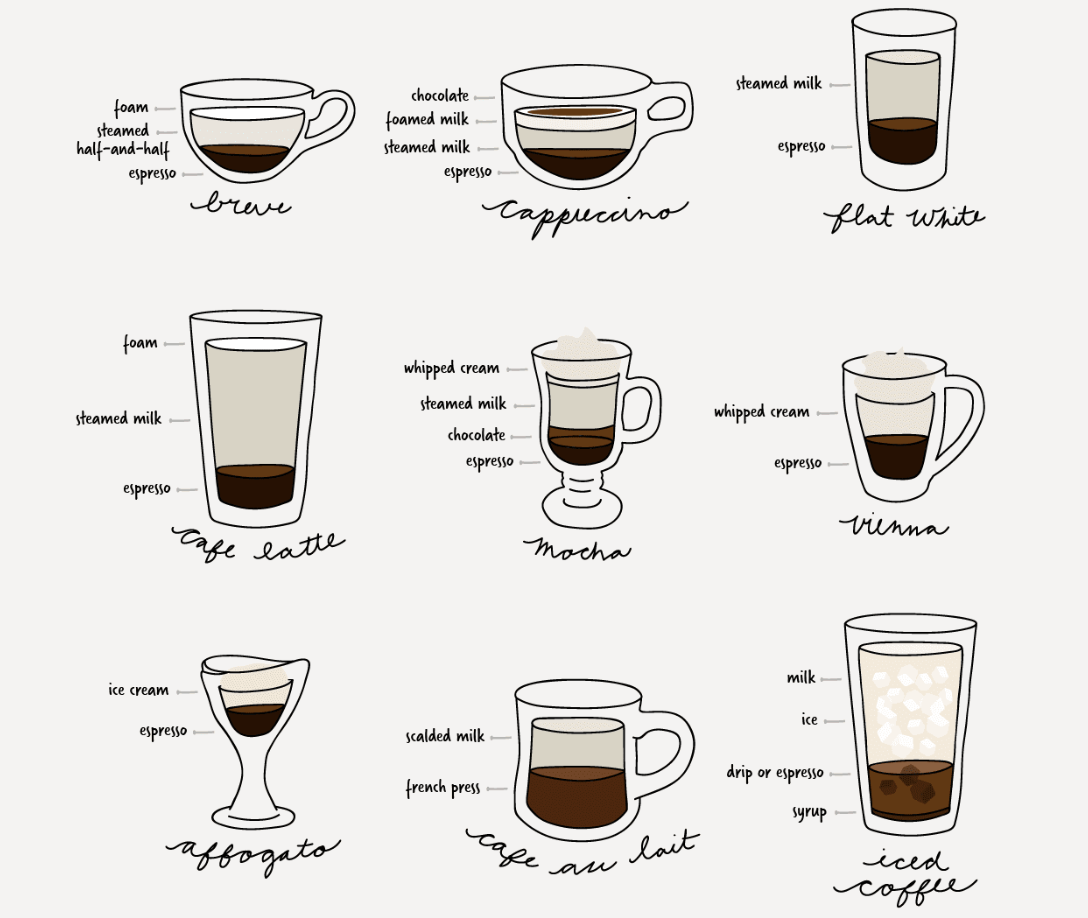 foam
steamed
half-and-half
espresso
breve
chocolate
foamed milk
steamed milk
espresso
cappuccino
steamed milk
espresso
flat white
foam
steamed milk
espresso
cafe latte
whipped cream
steamed milk
chocolate
espresso
mocha
whipped cream
espresso
vienna
ice cream
espresso
affogato
scalded milk
french press
cafe au lait
milk
ice
drip or espresso
syrup
iced
coffee